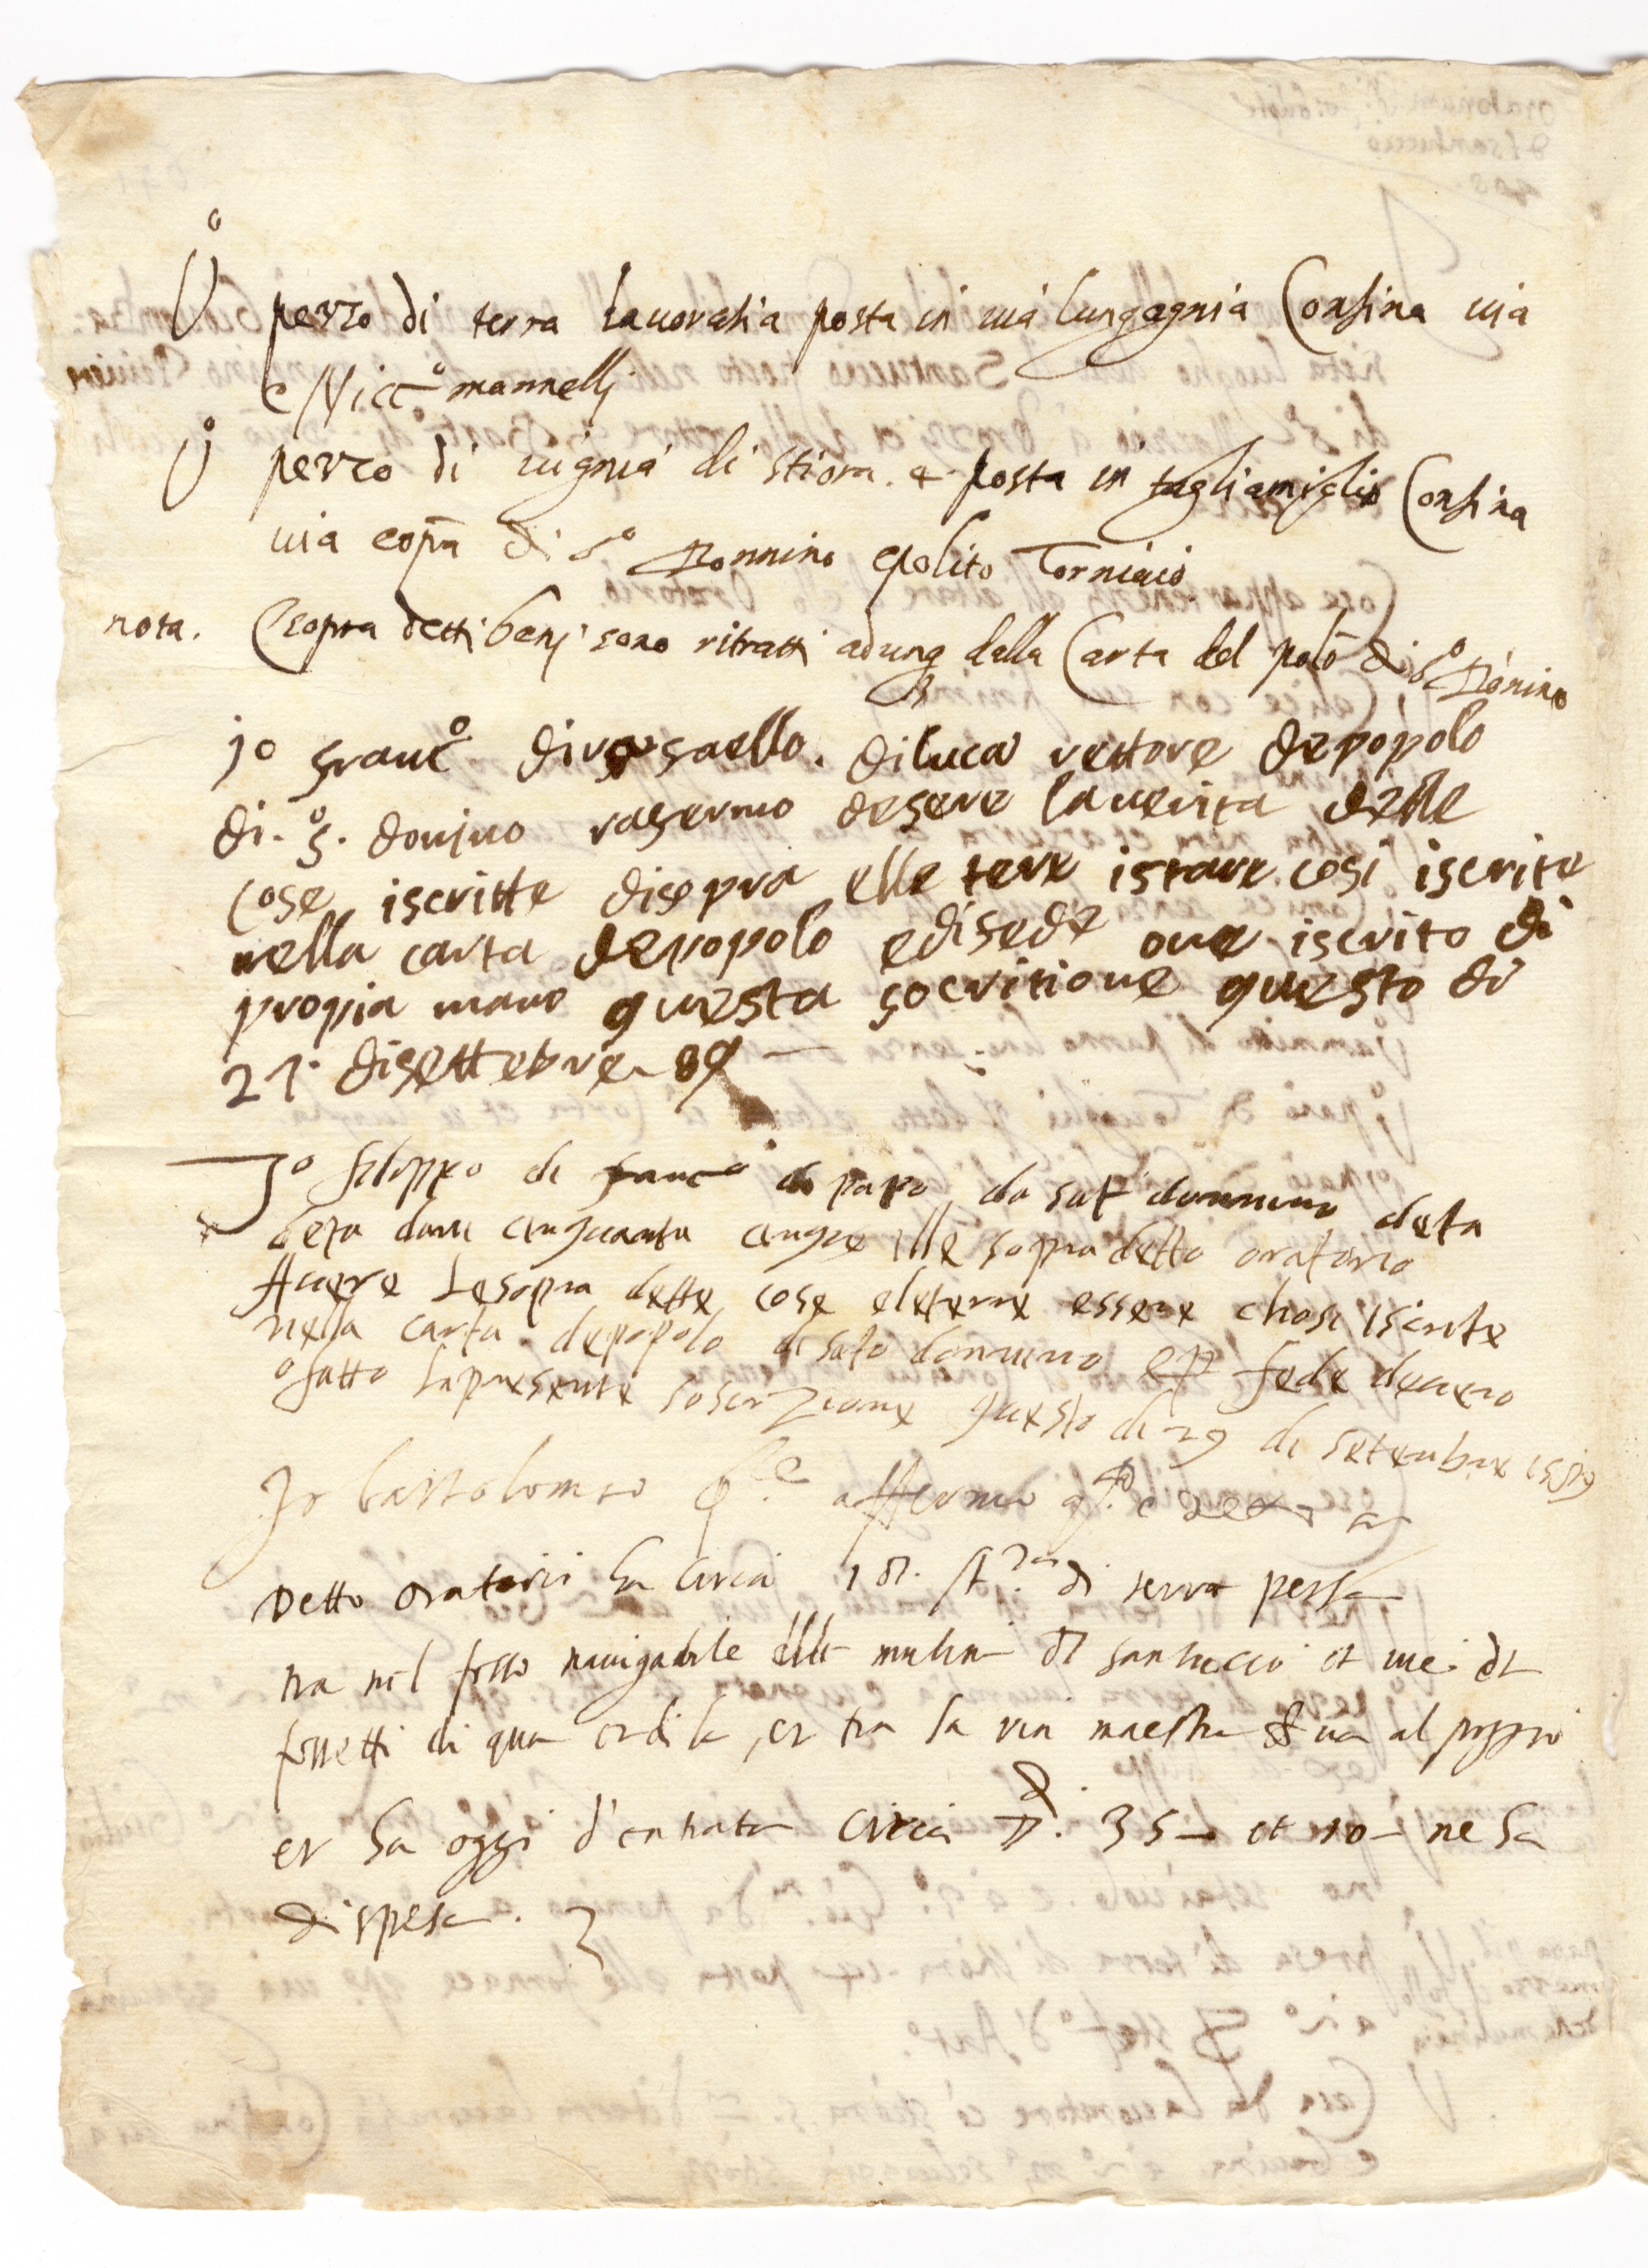 Uº pezzo di terra lauoratia posta in uia lungagnia Confina uia
e Niccº mannellj
Uº pezzo di uignia di stiora 4 posta in tagliamiglio Confina
uia e di Sº Donnino epolito Torniaio
nota. E sopra detti benj sono ritratti dalla Carta del polo di Sº Donino
jº francº di rafaello. di luca rettore de popolo
di. Sº. donjno rafermo esere la uerita delle
cose iscritte disopra elle tere istare cosi iscrite
nella carta depopolo edifede oue iscrito di
propia mano questa socritione questo di
27. disettebre 89
Jº filippo di francº di papo da sat donnino deta
deta danni cinquanta cinque sopradetto oratorio
Auere lesopra dette cose eleterre essere chosi iscrite
nella carta depopolo di sato donnino e p fede deuero
o fatto lapresente soscrizione questo di 29 di setenbre 1589
Jo bartolomeo affermo
Detto Oratorio ha circa 18. di terra persa
tra nel fosso nauigabile delle mulina di santuccio et uie di
fossetti di qua et di la, et tra la uia maestra &amp; ua al poggio
et ha oggi d'entrata circa 35 et 10 ne ha
di spesa.